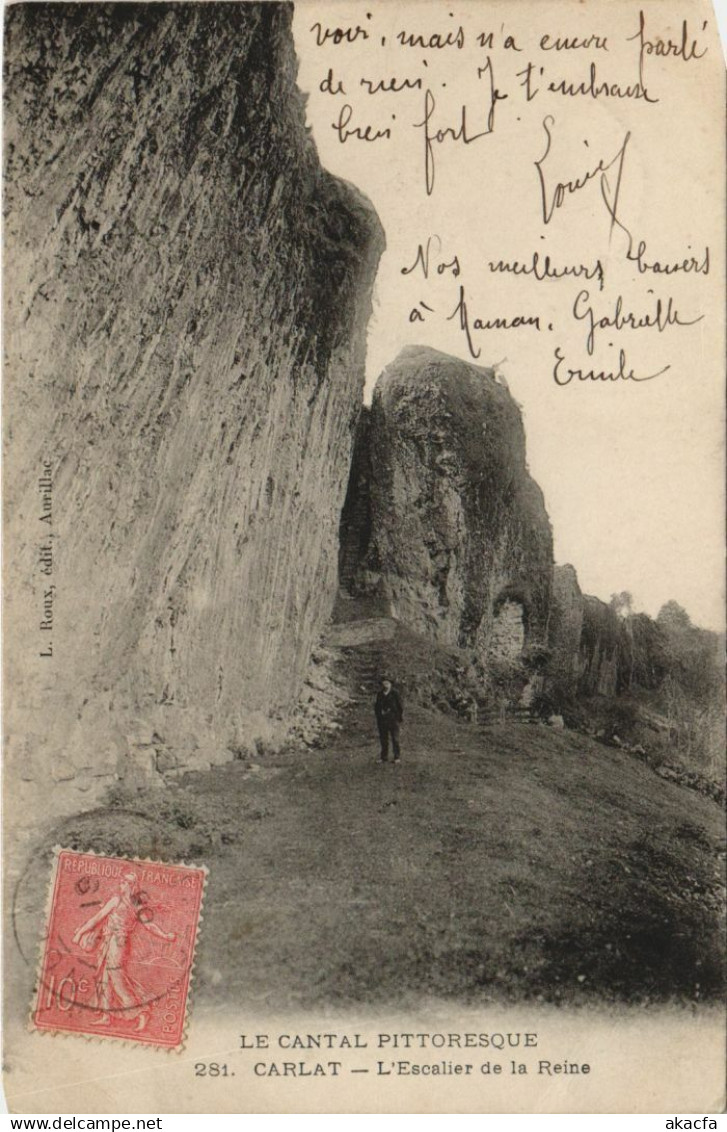 voir, mais n'a encore parlé
de rien. Je t'embrasse
bien fort
Louis
Nos meilleurs baisers
à Maman, Gabrielle
Emile
L. Roux, édit., Aurillac
RÉPUBLIQUE FRANÇAISE
10c
POSTES
LE CANTAL PITTORESQUE
281. CARLAT — L'Escalier de la Reine
akacfa
www.delcampe.net